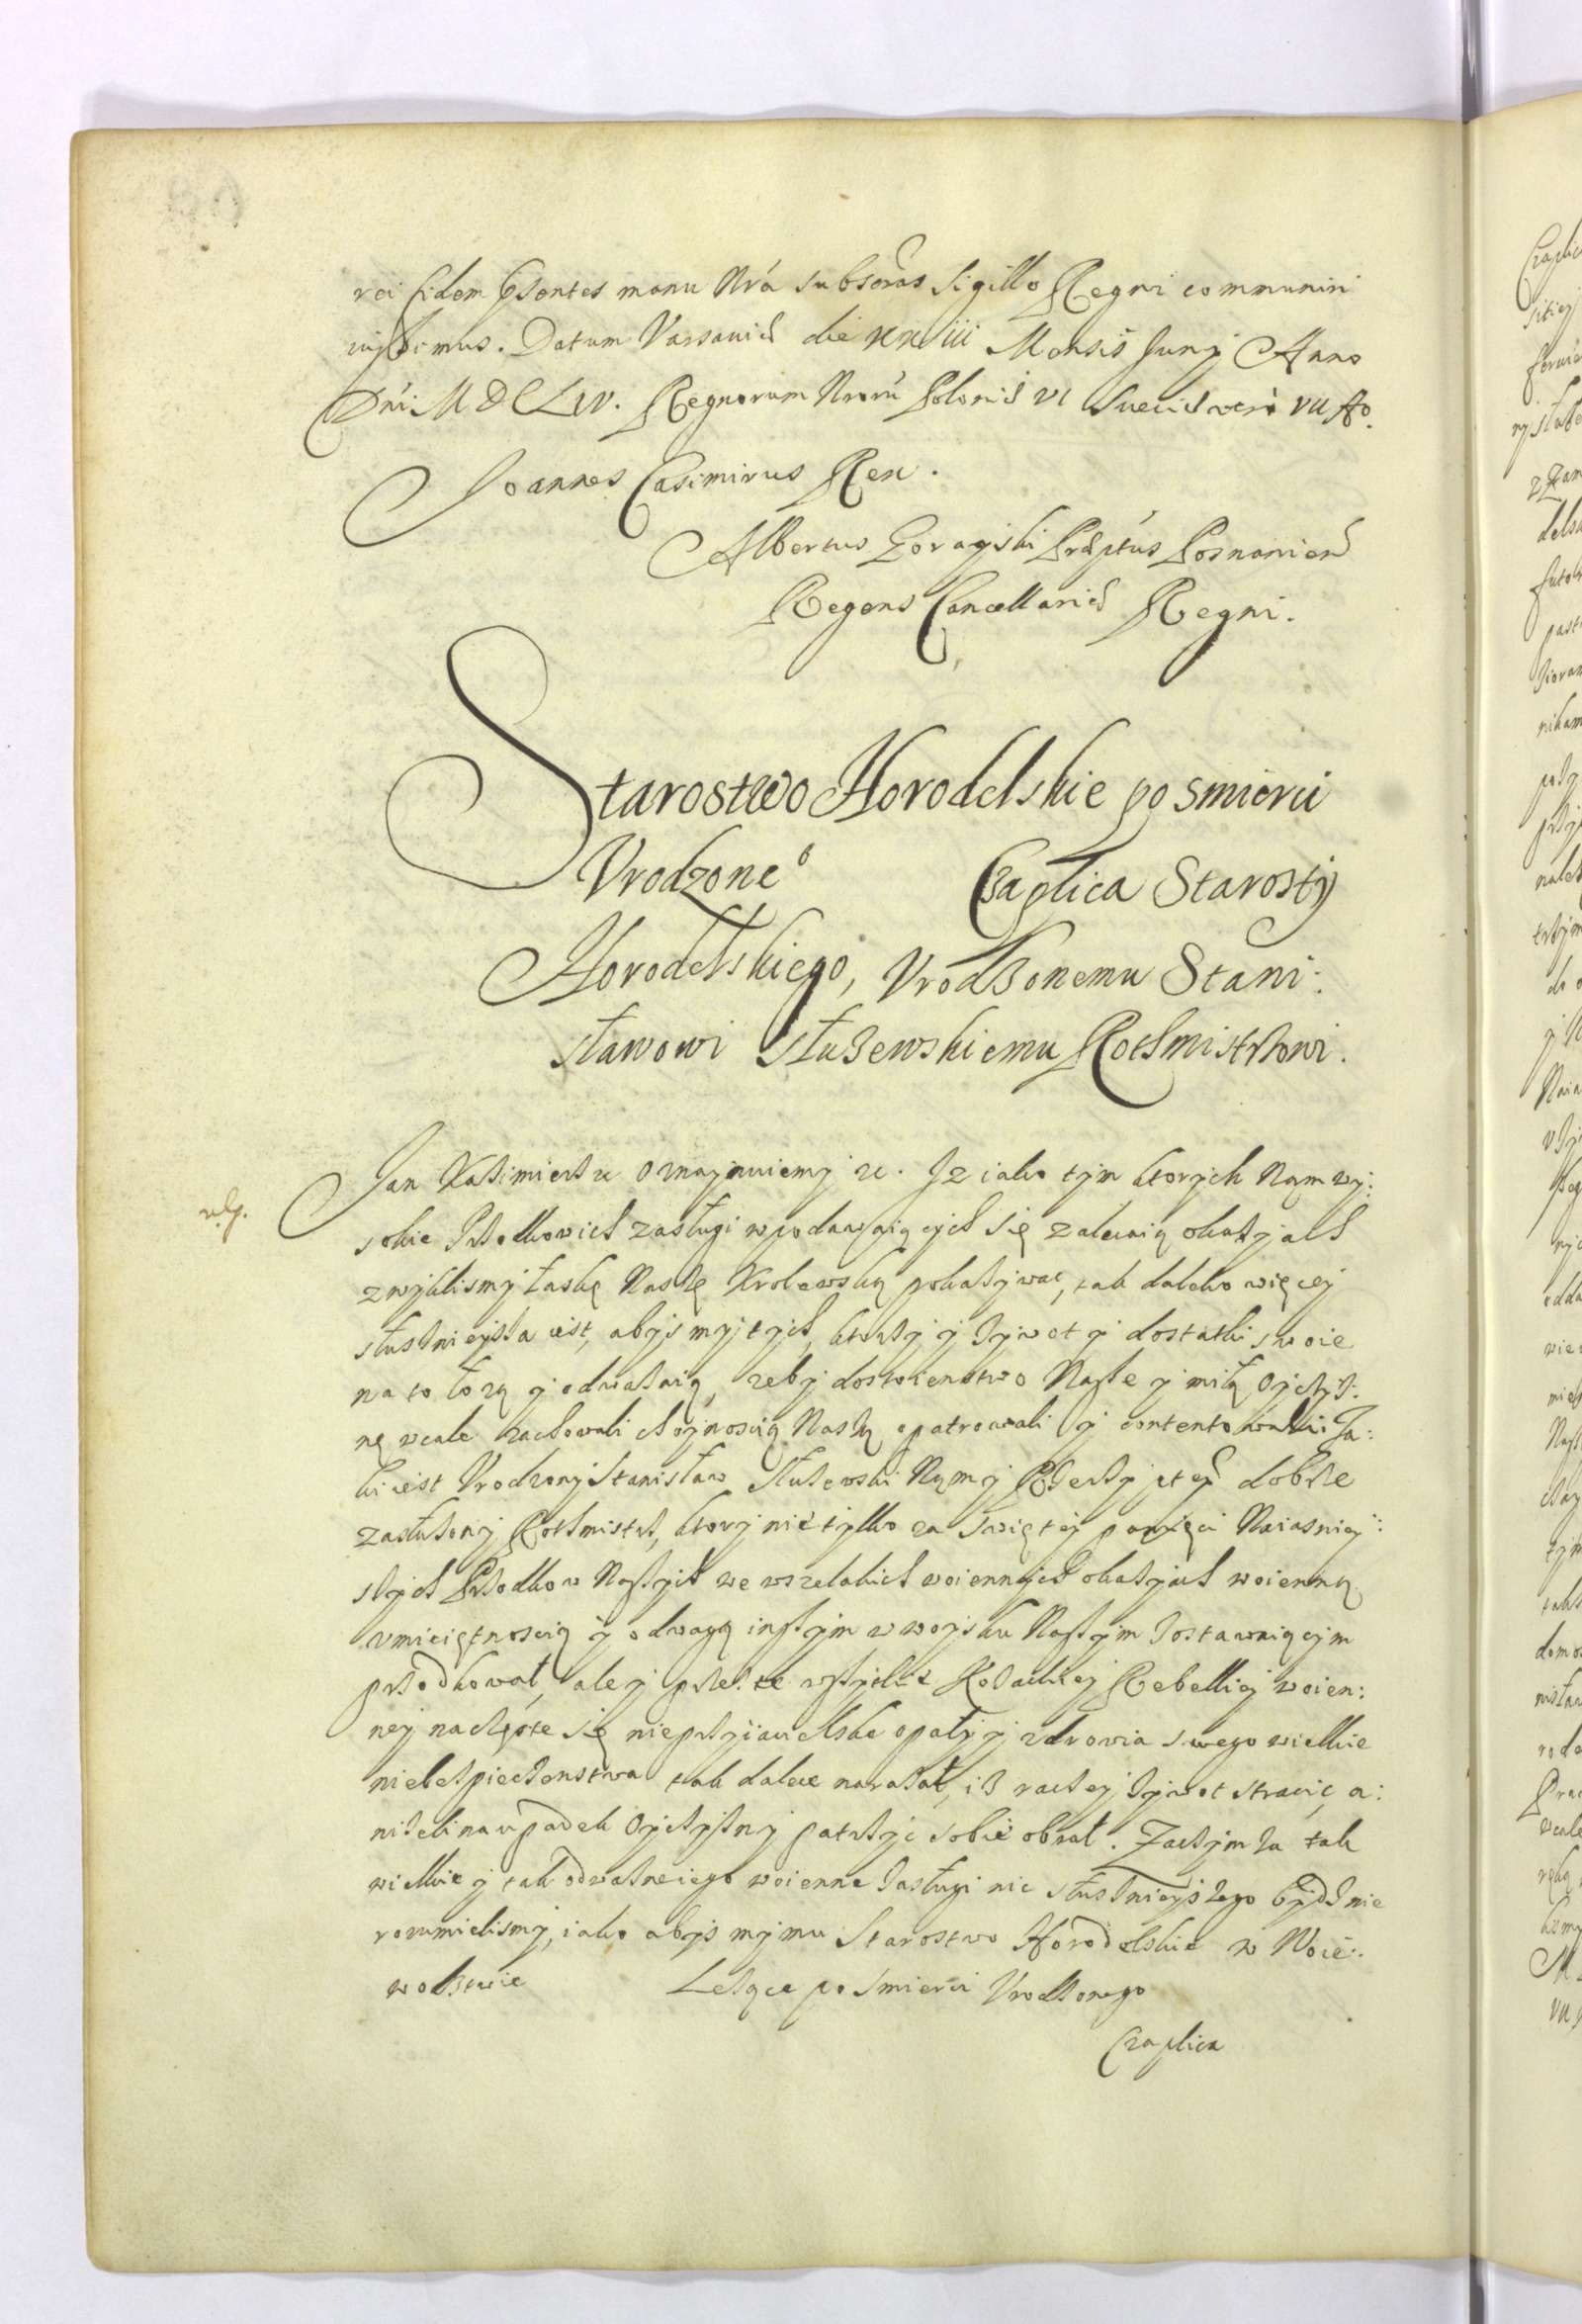 rei fidem pñtes manu Nrá subscrãs Sigillo Regni communiri
iussimus. Datum Varsaviæ die XXIII Mensis Junij Anno
Dñi M DC LIV. Regnorum Nrorũ Poloniæ VI Sueciæ vero VII Ao.
Joannes Casimirus Rex.
Albertus Gorayski Præptus Posnanien
Regens Cancellariæ Regni.
Starostwo Horodelskie po smierci
Vrodzoneo Czaplica Starosty
Horodelskiego, Vrodzonemu Stani:
sławowi Służewskiemu Rothmistrzowi.
Jan Kazimierz &c Oznaymuiemy &c. Jz iako tym ktorych Nam wy:
sokie Przodkowich zasługi wpodawaiących się zalecaią okazyach
zwyklismy łaskę Naszę Krolewską pokazywac, tak daleko więcey
słusznieysza iest, abysmy tych, ktorzy y zywot y dostatki swoie
na to łozą y odwazaią, zeby dostoienstwo Nasze y miłą Oyczyz:
nę wcale zachowali choynoscią Naszą opatrowali y contentowali. Ja:
ki iest Vrodzony Stanisław Służewski Nam y Rzeczyptey dobrze
zasłuzony Rothmistrz, ktory nie tylko za swiętey pamięci Naiasniey:
szych Przodkow Naszych we wszelakich woiennych okazyach woienną
vmieiętnoscią y odwagą inszym w woysku Naszym zostawaiącym
przodkował, ale y przez te wszytkie Kozackiey Rebelliey woien:
ney naczęste się nieprzyiacielskie opały y zdrowia swego wielkie
niebezpieczenstwa tak dalece narazał, iz raczey zywot stracic, a:
nizeli na vpadek Oyczyzny patrzyc sobie obrał. Zaczym za tak
wielkie y tak odwazne iego woienne zasługi nic słusznieyszego bydz nie
rozumielismy, iako abysmy mu Starostwo Horodelskie w Woie:
wodztwie Lezące po smierci Vrodzonego
Czaplica